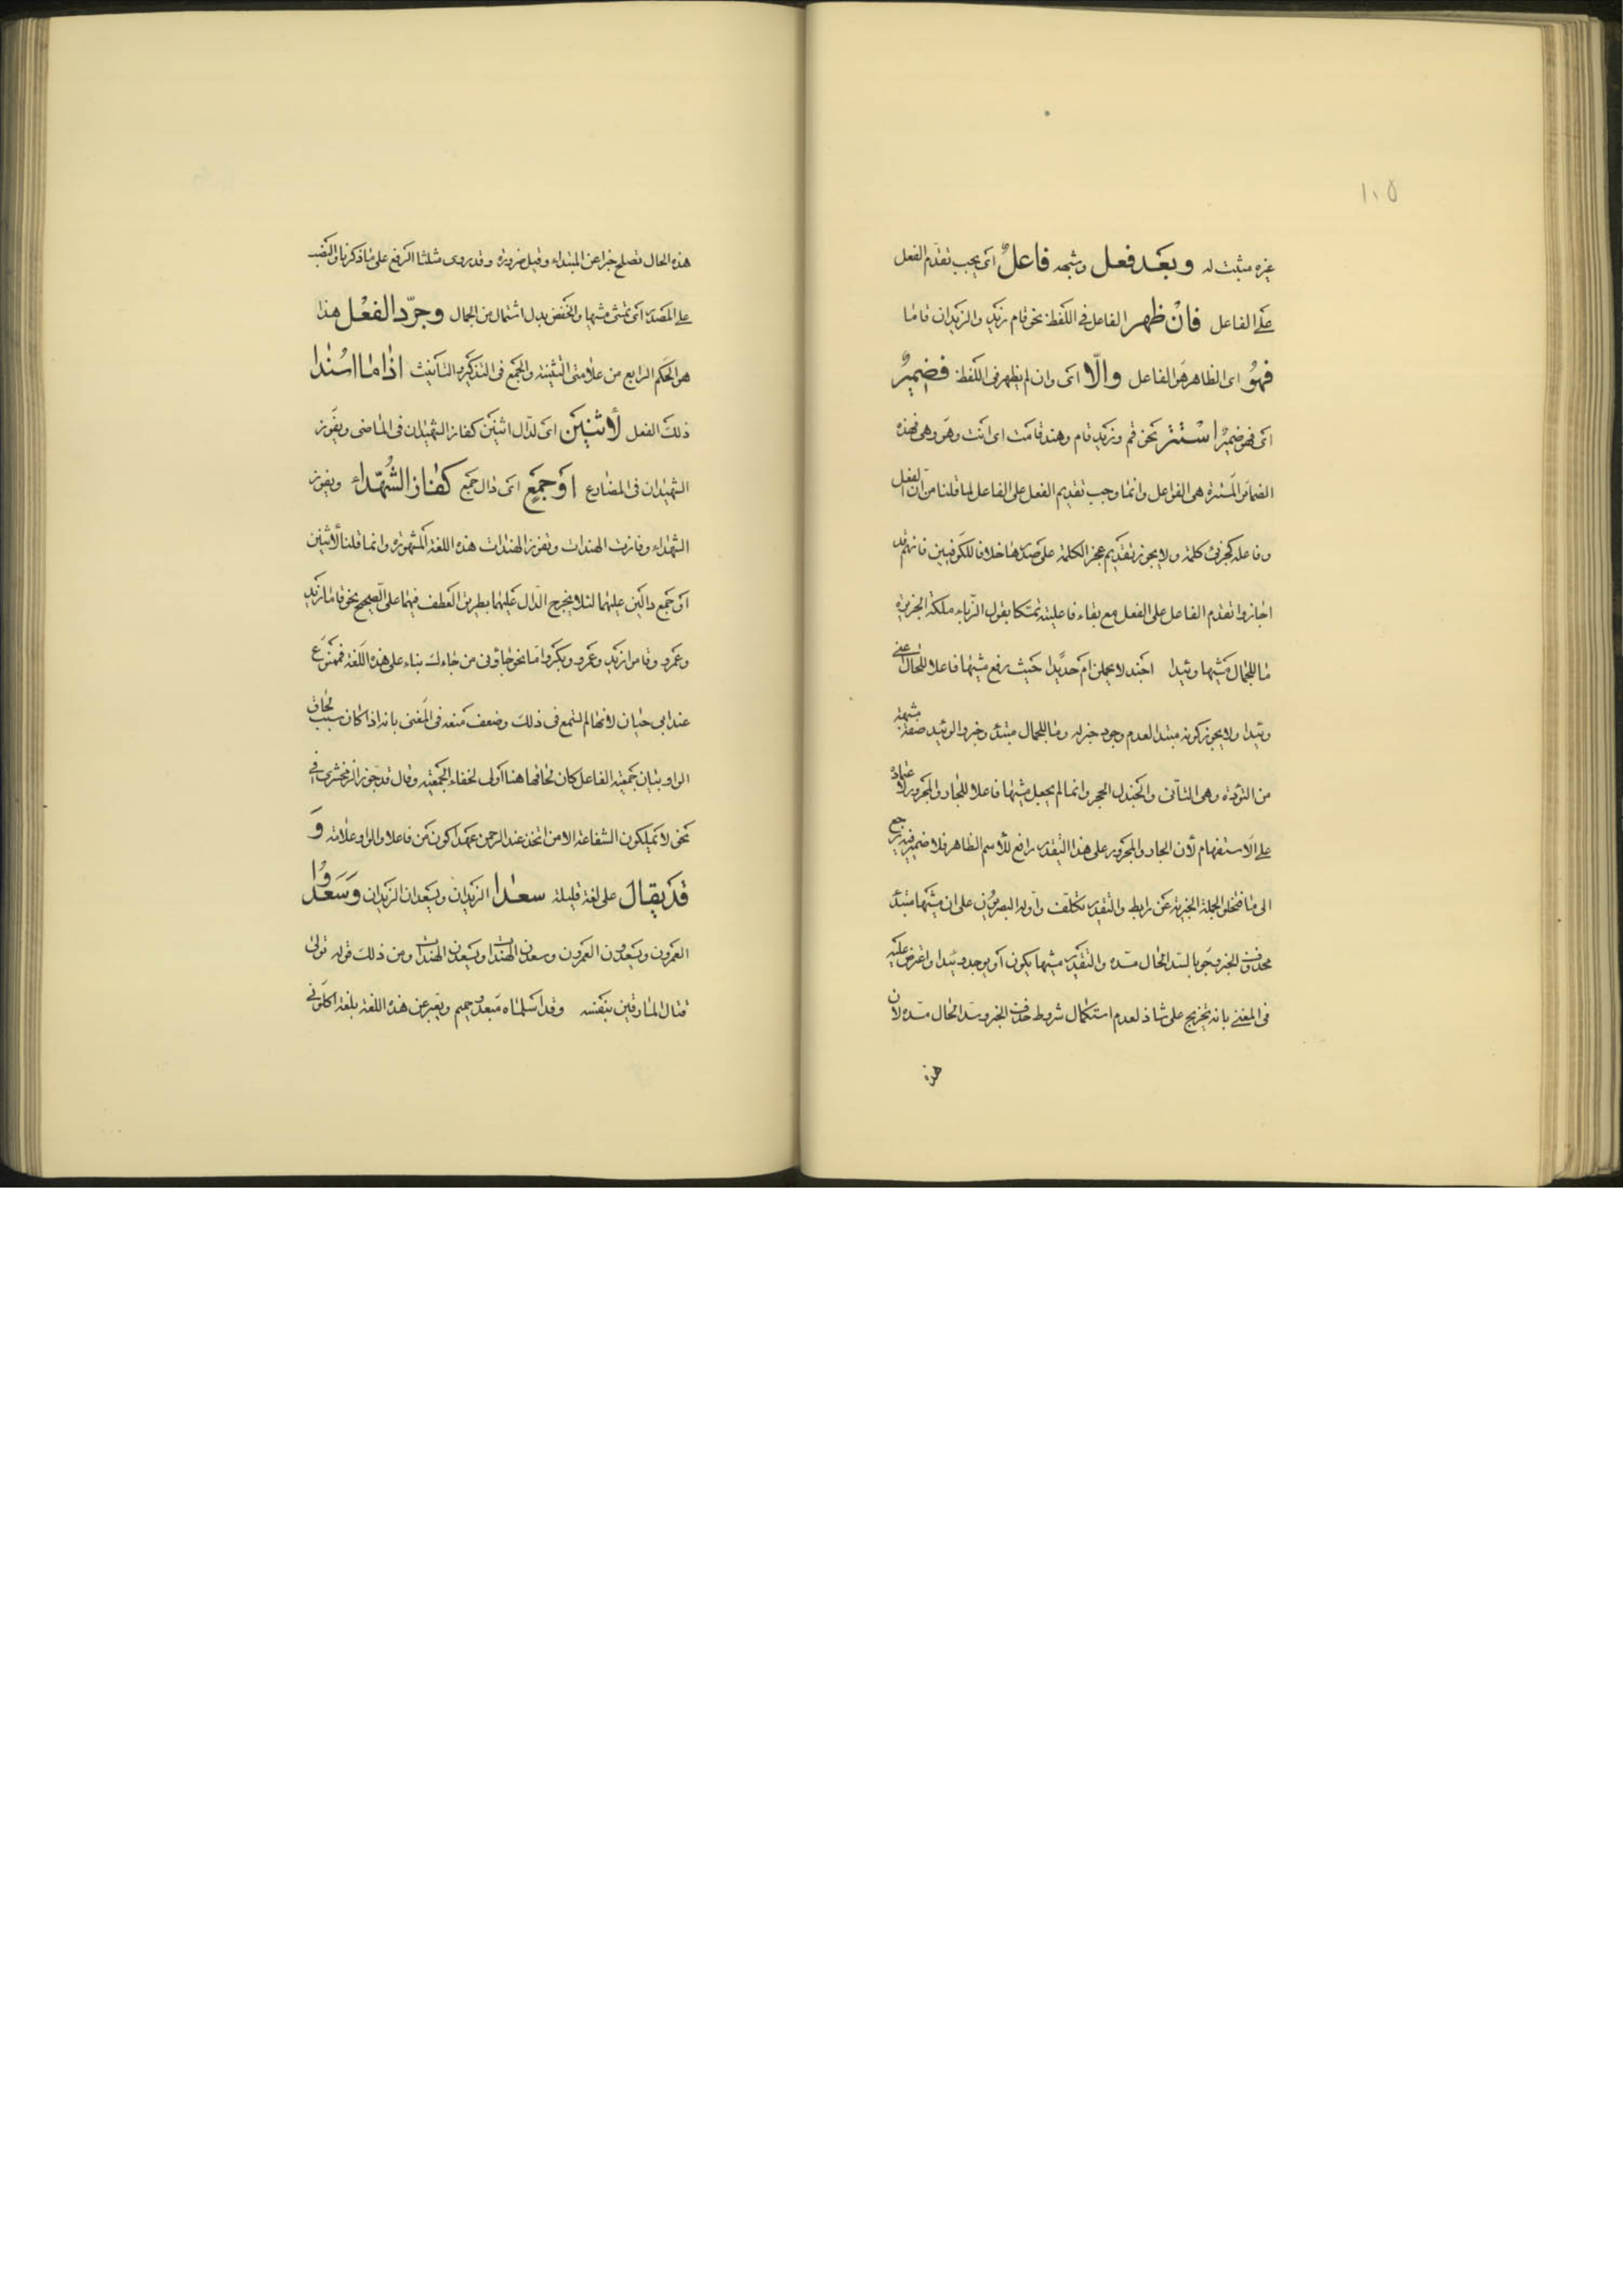 ١٠٥
غيره مثبت له وبعد فعل وشبهه فاعلٌ اى يجب تقدّم الفعل
على الفاعل فان ظهر الفاعل فى اللفظ نحو قام زيد والزيدان قاما
فهو اى الظاهر هو الفاعل والّا اى وان لم يظهر فى اللفظ فضميرٌ
اى فهو ضميرٌ استتر نحو قم وزيد قام وهند قامت اى انت وهو وهى فهذه
الضمائر المستترة هى الفواعل وانما وجب تقديم الفعل على الفاعل لما قلنا من ان الفعل
وفاعله كجزئ كلمة ولا يجوز تقديم عجز الكلمة على صدرها خلافا للكوفيين فانهم قد
اجازوا تقدم الفاعل على الفعل مع بقاء فاعليته تمسّكا بقول الزّباء ملكة الجزيرة
ما للجمال مشيها وئيدا اجندلا يحملن ام حديدا حيث رفع مشيها فاعلا للحال اعنى
وئيدا ولا يجوز كونه مبتدا لعدم وجود خبر له وما للجمال مبتدأ وخبر والوئيد صفة مشبهة
من التؤدة وهى التأنى والجندل الحجر وانما لم يجعل مشيها فاعلا للجار والمجرور لاعتماده
على الاستفهام لأن الجار والمجرور على هذا التقدير رافع للأسم الظاهر فلا ضمير فيه يرجع
الى ما فتخلو الجملة الخبرية عن رابط والتقدير تكلّف واوله البصريون على ان مشيها مبتدأ
محذوف الخبر وجوبا لسدّ الحال مسدّه والتقدير مشيها يكون او يوجد وئيدا واعترض عليه
فى المغنى بانه تخريج على شاذ لعدم استكمال شروط حذف الخبر وسدّ الحال مسدّه لأن
هذه
هذه الحال تصلح خبرا عن المبتداء وقيل ضرورة وقد روى مثلثا الرفع على ما ذكرنا والنصب
على المصدر اى تمشى مشيها والخفض بدل اشتمال من الجمال وجرّد الفعل هذا
هو الحكم الرابع من علامتى التثنية والجمع فى التذكير والتأنيث اذا ما اسندا
ذلك الفعل لأثنين اى لدال اثنين كفاز الشهيدان فى الماضى ويفوز
الشهيدان فى المضارع او جمع اى دال جمع كفاز الشُّهدا ويفوز
الشهداء وفازت الهندات وتفوز الهندات هذه اللغة المشهورة وانما قلنا لأثنين
او جمع دالين عليهما لئلا يخرج الدال عليهما بطريق العطف فيهما على الصحيح نحو قاما زيد
وعمرو وقاموا زيد وعمرو وبكر واما نحو جاؤنى من جاءك بناء على هذه اللغة فممنوع
عند ابى حيان لانها لم تسمع فى ذلك وضعف منعه فى المغنى بانه اذا كان سبب لحاق
الواو بيان جمعية الفاعل كان لحاقها هنا اولى لخفاء الجمعية وقال قد جوز الزمخشرى فى
نحو لا يملكون الشفاعة الا من اتخذ عند الرحمن عهدا كون من فاعلا والواو علامة وَ
قد يقال على لغة قليلة سعدا الزيدان ويسعدان الزيدان وسَعَدُوا
العمرون ويسعدون العمرون وسعدن الهندات ويسعدن الهندات ومن ذلك قوله تولى
قتال المارقين بنفسه وقد اسلماه مبعد وحميم ويعبر عن هذه اللغة بلغة اكلونى